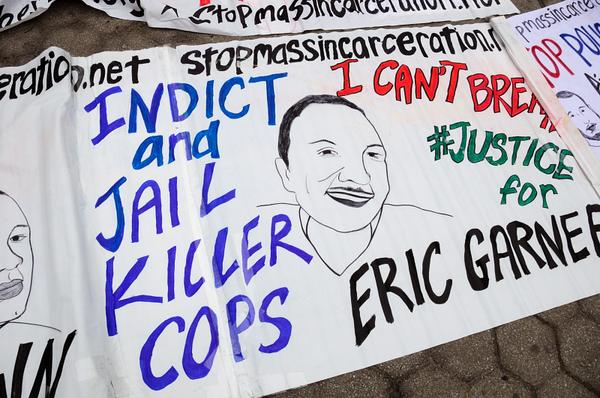 Stopmassincarceration.net
eration.net
stopmassincarceration.n
INDICT
and
JAIL
KILLER
COPS
I CAN'T BREA
#JUSTICE
for
ERIC GARNER
pmassincarce
TOP POLI